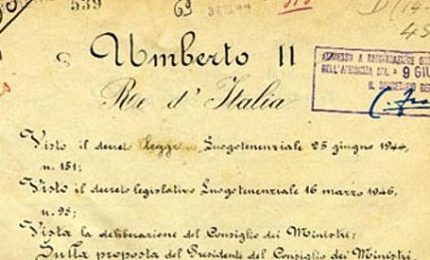 539
69
Umberto II
Re d'Italia
9 GIU
Visto il decreto legge Luogotenenziale 25 giugno 1944,
n. 151;
Visto il decreto legislativo Luogotenenziale 16 marzo 1946,
n. 98;
Vista la deliberazione del Consiglio dei Ministri;
Sulla proposta del Presidente del Consiglio dei Ministri,